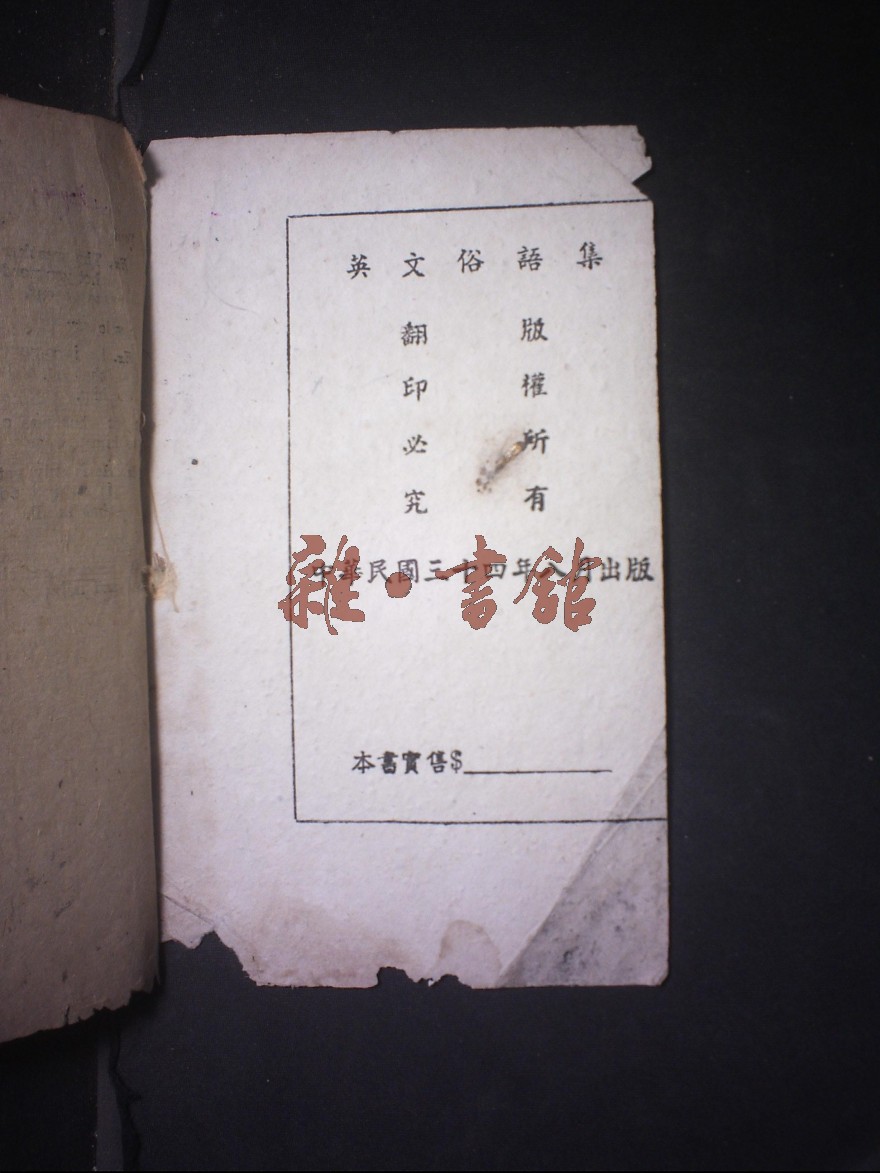 英文俗語集
版權所有
翻印必究
中華民國三十四年八月出版
雜·書館
本書實售$